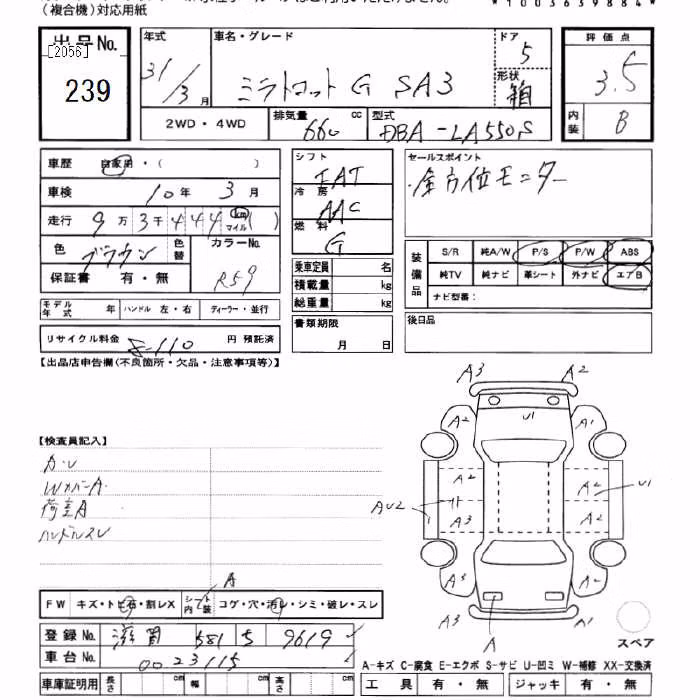 (複合機)対応用紙
*1003639884*
出品No.
[2056]
239
年式 31/3月
車名・グレード ミラトコット G SA3
ドア 5
形状 箱
評価点 3.5
内装 B
2WD・4WD
排気量 660 cc
型式 DBA-LA550S
車歴 自家用・( )
車検 10年 3月
走行 9万3千444 km マイル( )
色 ブラウン
色替
カラーNo. R59
保証書 有・無
モデル年式 年 ハンドル 左・右 ディーラー・並行
リサイクル料金 円 預託済
シフト IAT
冷房 AAC
燃料 G
乗車定員 名
積載量 kg
総重量 kg
書類期限
月 日
セールスポイント
全方位モニター
装備品
S/R 純A/W P/S P/W ABS
純TV 純ナビ 革シート 外ナビ エアB
ナビ型番:
後日品
【出品店申告欄(不良箇所・欠品・注意事項等)】
【検査員記入】
WカバーA
荷室A
ハンドルスレ
A3 A2
A2 U1 A1
A2 A2 U1
AU2 A3 A2
A3 A2
A3 A A1
スペア
A
FW キズ・トビ石・割レX シート内装 コゲ・穴・汚レ・シミ・破レ・スレ
登録No. 滋賀 581 5 9619
車台No. 0023115
車庫証明用 長さ cm 幅 cm 高さ cm
A-キズ C-腐食 E-エクボ S-サビ U-凹ミ W-補修 XX-交換済
工具 有・無 ジャッキ 有・無